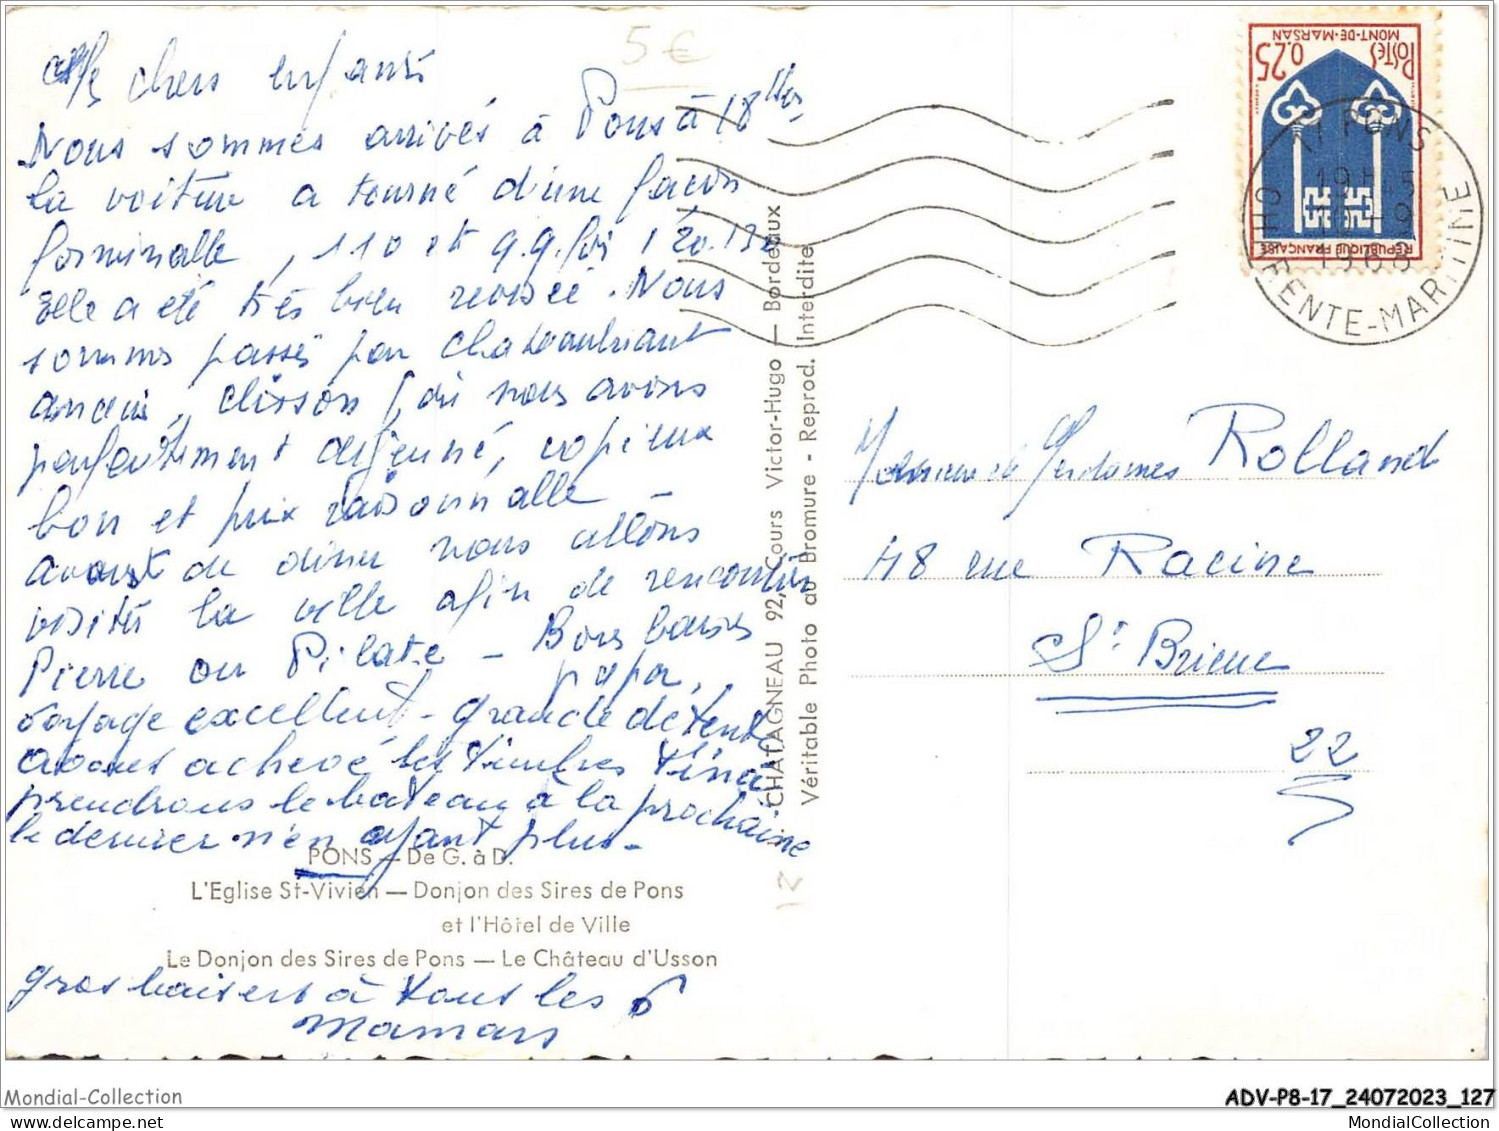 5 €
chers enfants
Nous sommes arrivés à Pons à 18 Hres
la voiture a tourné d'une façon
formidable, 110 et q.q.foi 120.130
Elle a été très bien revisée. Nous
sommes passés par Chateaubriant
ancenis, Clisson (où nous avons
parfaitement déjeuné, copieux
bon et prix raisonnable -
avant de diner nous allons
visiter la ville afin de rencontrer
Pierre ou Pilate - Bons baisers
papa.
voyage excellent - grande détente
avons achevé les timbres Tina
prendrons le bateau à la prochaine
le dernier n'en ayant plus -
PONS — De G. à D.
L'Eglise St-Vivien — Donjon des Sires de Pons
et l'Hôtel de Ville
Le Donjon des Sires de Pons — Le Château d'Usson
gros baisers à tous les 6
maman
CHATAGNEAU 92, Cours Victor-Hugo — Bordeaux
Véritable Photo au Bromure - Reprod. Interdite
POSTES
MONT-DE-MARSAN
0.25
RÉPUBLIQUE FRANÇAISE
PONS
19 H 45
1968
CHARENTE-MARITIME
Rolland
48 rue Racine
St Brieuc
22
Mondial-Collection
ADV-P8-17_24072023_127
MondialCollection
MondialCollection